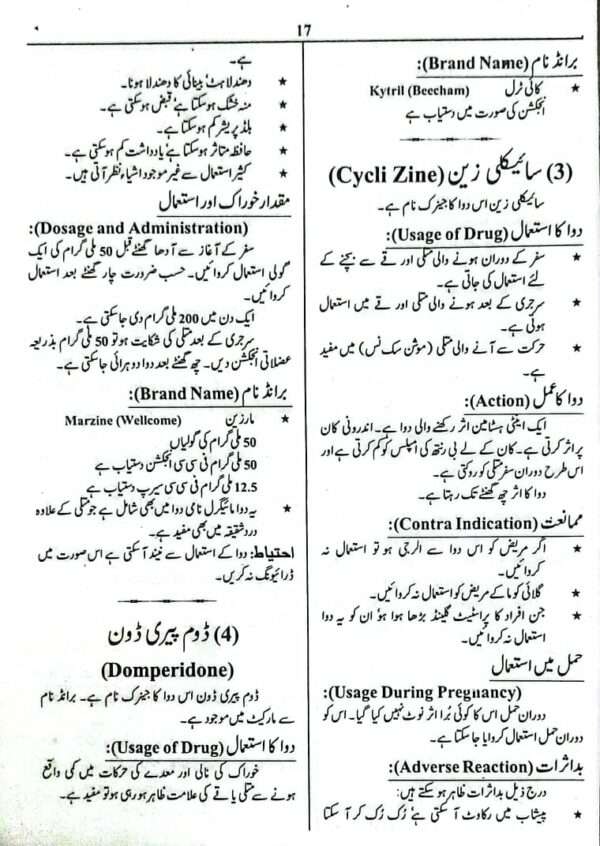 17
برانڈ نام (Brand Name):
★ کائی ٹرل Kytril (Beecham)
انجکشن کی صورت میں دستیاب ہے
(3) سائیکلی زین (Cycli Zine)
سائیکلی زین اس دوا کا جینرک نام ہے۔
دوا کا استعمال (Usage of Drug):
★ سفر کے دوران ہونے والی متلی اور قے سے بچنے کے
لئے استعمال کی جاتی ہے۔
★ سرجری کے بعد ہونے والی متلی اور قے میں استعمال
ہوتی ہے۔
★ حرکت سے آنے والی متلی (موشن سک نس) میں مفید
ہے۔
دوا کا عمل (Action):
ایک اینٹی ہسٹامین اثر رکھنے والی دوا ہے۔ اندرونی کان
پر اثر کرتی ہے۔ کان کے لے بی رنتھ کی امپلس کو کم کرتی ہے اور
اس طرح دوران سفر متلی کو روکتی ہے۔
دوا کا اثر چھ گھنٹے تک رہتا ہے۔
ممانعت (Contra Indication):
★ اگر مریض کو اس دوا سے الرجی ہو تو استعمال نہ
کروائیں۔
★ گلائی کوما کے مریض کو استعمال نہ کروائیں۔
★ جن افراد کا پراسٹیٹ گلینڈ بڑھا ہوا ہو' ان کو یہ دوا
استعمال نہ کروائیں۔
حمل میں استعمال
(Usage During Pregnancy):
دوران حمل اس کا کوئی بُرا اثر نوٹ نہیں کیا گیا۔ اس کو
دوران حمل استعمال کروایا جا سکتا ہے۔
بداثرات (Adverse Reaction):
درج ذیل بداثرات ظاہر ہو سکتے ہیں:
★ پیشاب میں رکاوٹ آ سکتی ہے' رُک رُک کر آ سکتا
ہے۔
★ دھندلاہٹ' بینائی کا دھندلا ہونا۔
★ منہ خشک ہو سکتا ہے' قبض ہو سکتی ہے۔
★ بلڈ پریشر کم ہو سکتا ہے۔
★ حافظہ متاثر ہو سکتا ہے' یادداشت کم ہو سکتی ہے۔
★ کثیر استعمال سے غیر موجود اشیاء نظر آتی ہیں۔
مقدار خوراک اور استعمال
(Dosage and Administration):
سفر کے آغاز سے آدھا گھنٹے قبل 50 ملی گرام کی ایک
گولی استعمال کروائیں۔ حسب ضرورت چار گھنٹے بعد استعمال
کروائیں۔
ایک دن میں 200 ملی گرام دی جا سکتی ہے۔
سرجری کے بعد متلی کی شکایت ہو تو 50 ملی گرام بذریعہ
عضلاتی انجکشن دیں۔ چھ گھنٹے بعد دوا دوہرائی جا سکتی ہے۔
برانڈ نام (Brand Name):
★ مارزین Marzine (Wellcome)
50 ملی گرام کی گولیاں
50 ملی گرام فی سی سی انجکشن دستیاب ہے
12.5 ملی گرام فی سی سی سیرپ دستیاب ہے
★ یہ دوا مائیگرل نامی دوا میں بھی شامل ہے جو متلی کے علاوہ
درد شقیقہ میں بھی مفید ہے۔
احتیاط: دوا کے استعمال سے نیند آ سکتی ہے اس صورت میں
ڈرائیونگ نہ کریں۔
(4) ڈوم پیری ڈون
(Domperidone)
ڈوم پیری ڈون اس دوا کا جینرک نام ہے۔ برانڈ نام
سے مارکیٹ میں موجود ہے۔
دوا کا استعمال (Usage of Drug):
خوراک کی نالی اور معدے کی حرکات میں کمی واقع
ہونے سے متلی یا قے کی علامت ظاہر ہو رہی ہو تو مفید ہے۔